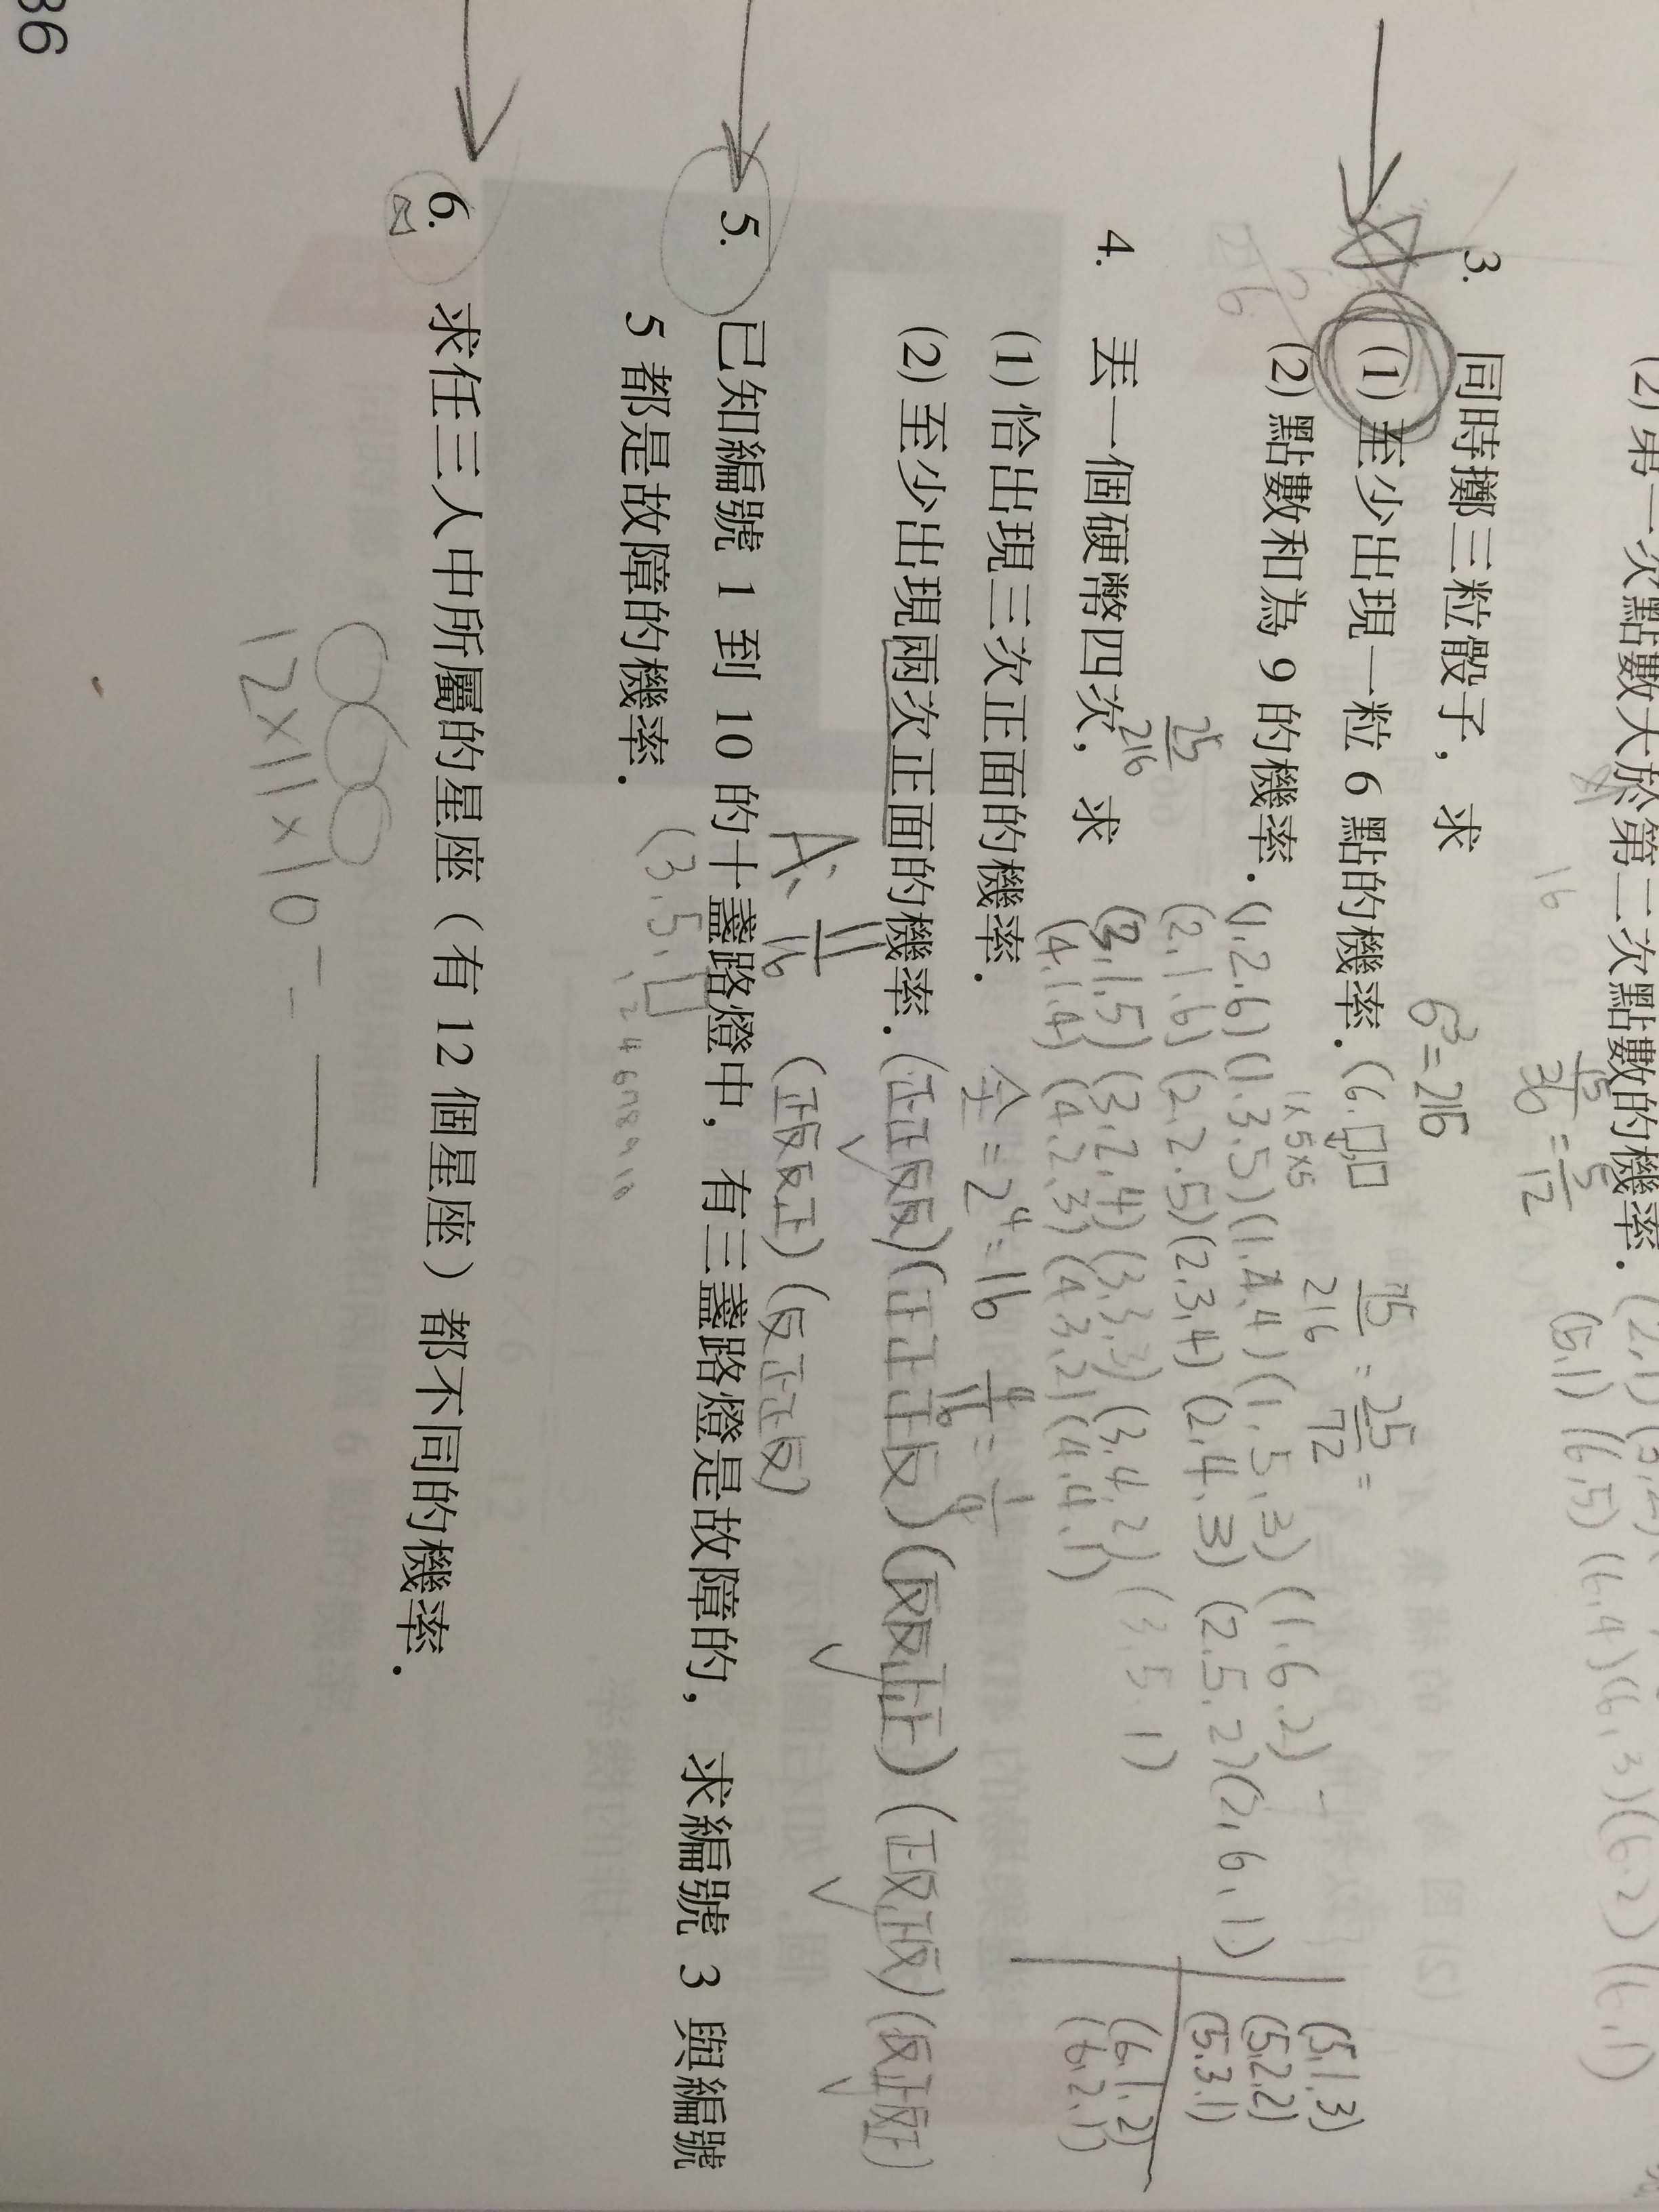 (2) 第一次點數大於第二次點數的機率.
(5,1) (6,5) (6,4) (6,3) (6,2) (6,1)
16
15/36 = 5/12
3. 同時擲三粒骰子, 求
6³ = 216
(1) 至少出現一粒 6 點的機率. (6,□,□)
1×5×5
75/216 = 25/72 =
(2) 點數和為 9 的機率.
25/216
(1,2,6) (1,3,5) (1,4,4) (1,5,3) (1,6,2)
(2,1,6) (2,2,5) (2,3,4) (2,4,3) (2,5,2) (2,6,1)
(3,1,5) (3,2,4) (3,3,3) (3,4,2) (3,5,1)
(4,1,4) (4,2,3) (4,3,2) (4,4,1)
(5,1,3)
(5,2,2)
(5,3,1)
(6,1,2)
(6,2,1)
4. 丟一個硬幣四次, 求
(1) 恰出現三次正面的機率.
全 = 2⁴ = 16
4/16 = 1/4
(2) 至少出現兩次正面的機率.
(正正反反) (正正正反) (反反正正) (正反正反) (反正反正)
(正反反正) (反正正反)
A: 11/16
5. 已知編號 1 到 10 的十盞路燈中, 有三盞路燈是故障的, 求編號 3 與編號
5 都是故障的機率.
(3,5,□
1 2 4 6 7 8 9 10
6. 求任三人中所屬的星座（有 12 個星座）都不同的機率.
12×11×10
36